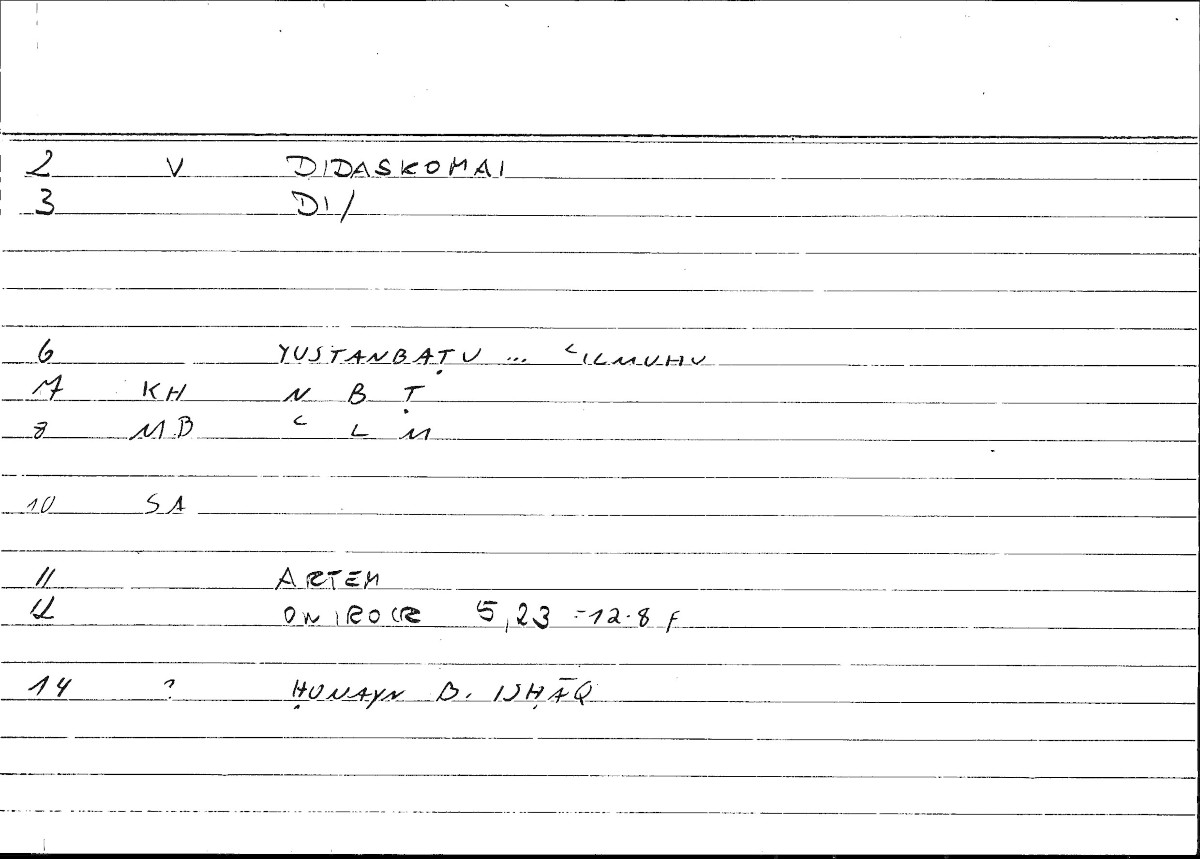 2 V DIDASKOMAI
3 DI/
6 YUSTANBAṬU ... ʿILMUHU
7 KH N B Ṭ
8 MB ʿ L M
10 SA
11 ARTEM
12 ONIROCR 5,23 = 12.8 f
14 ? ḤUNAYN B. ISḤĀQ